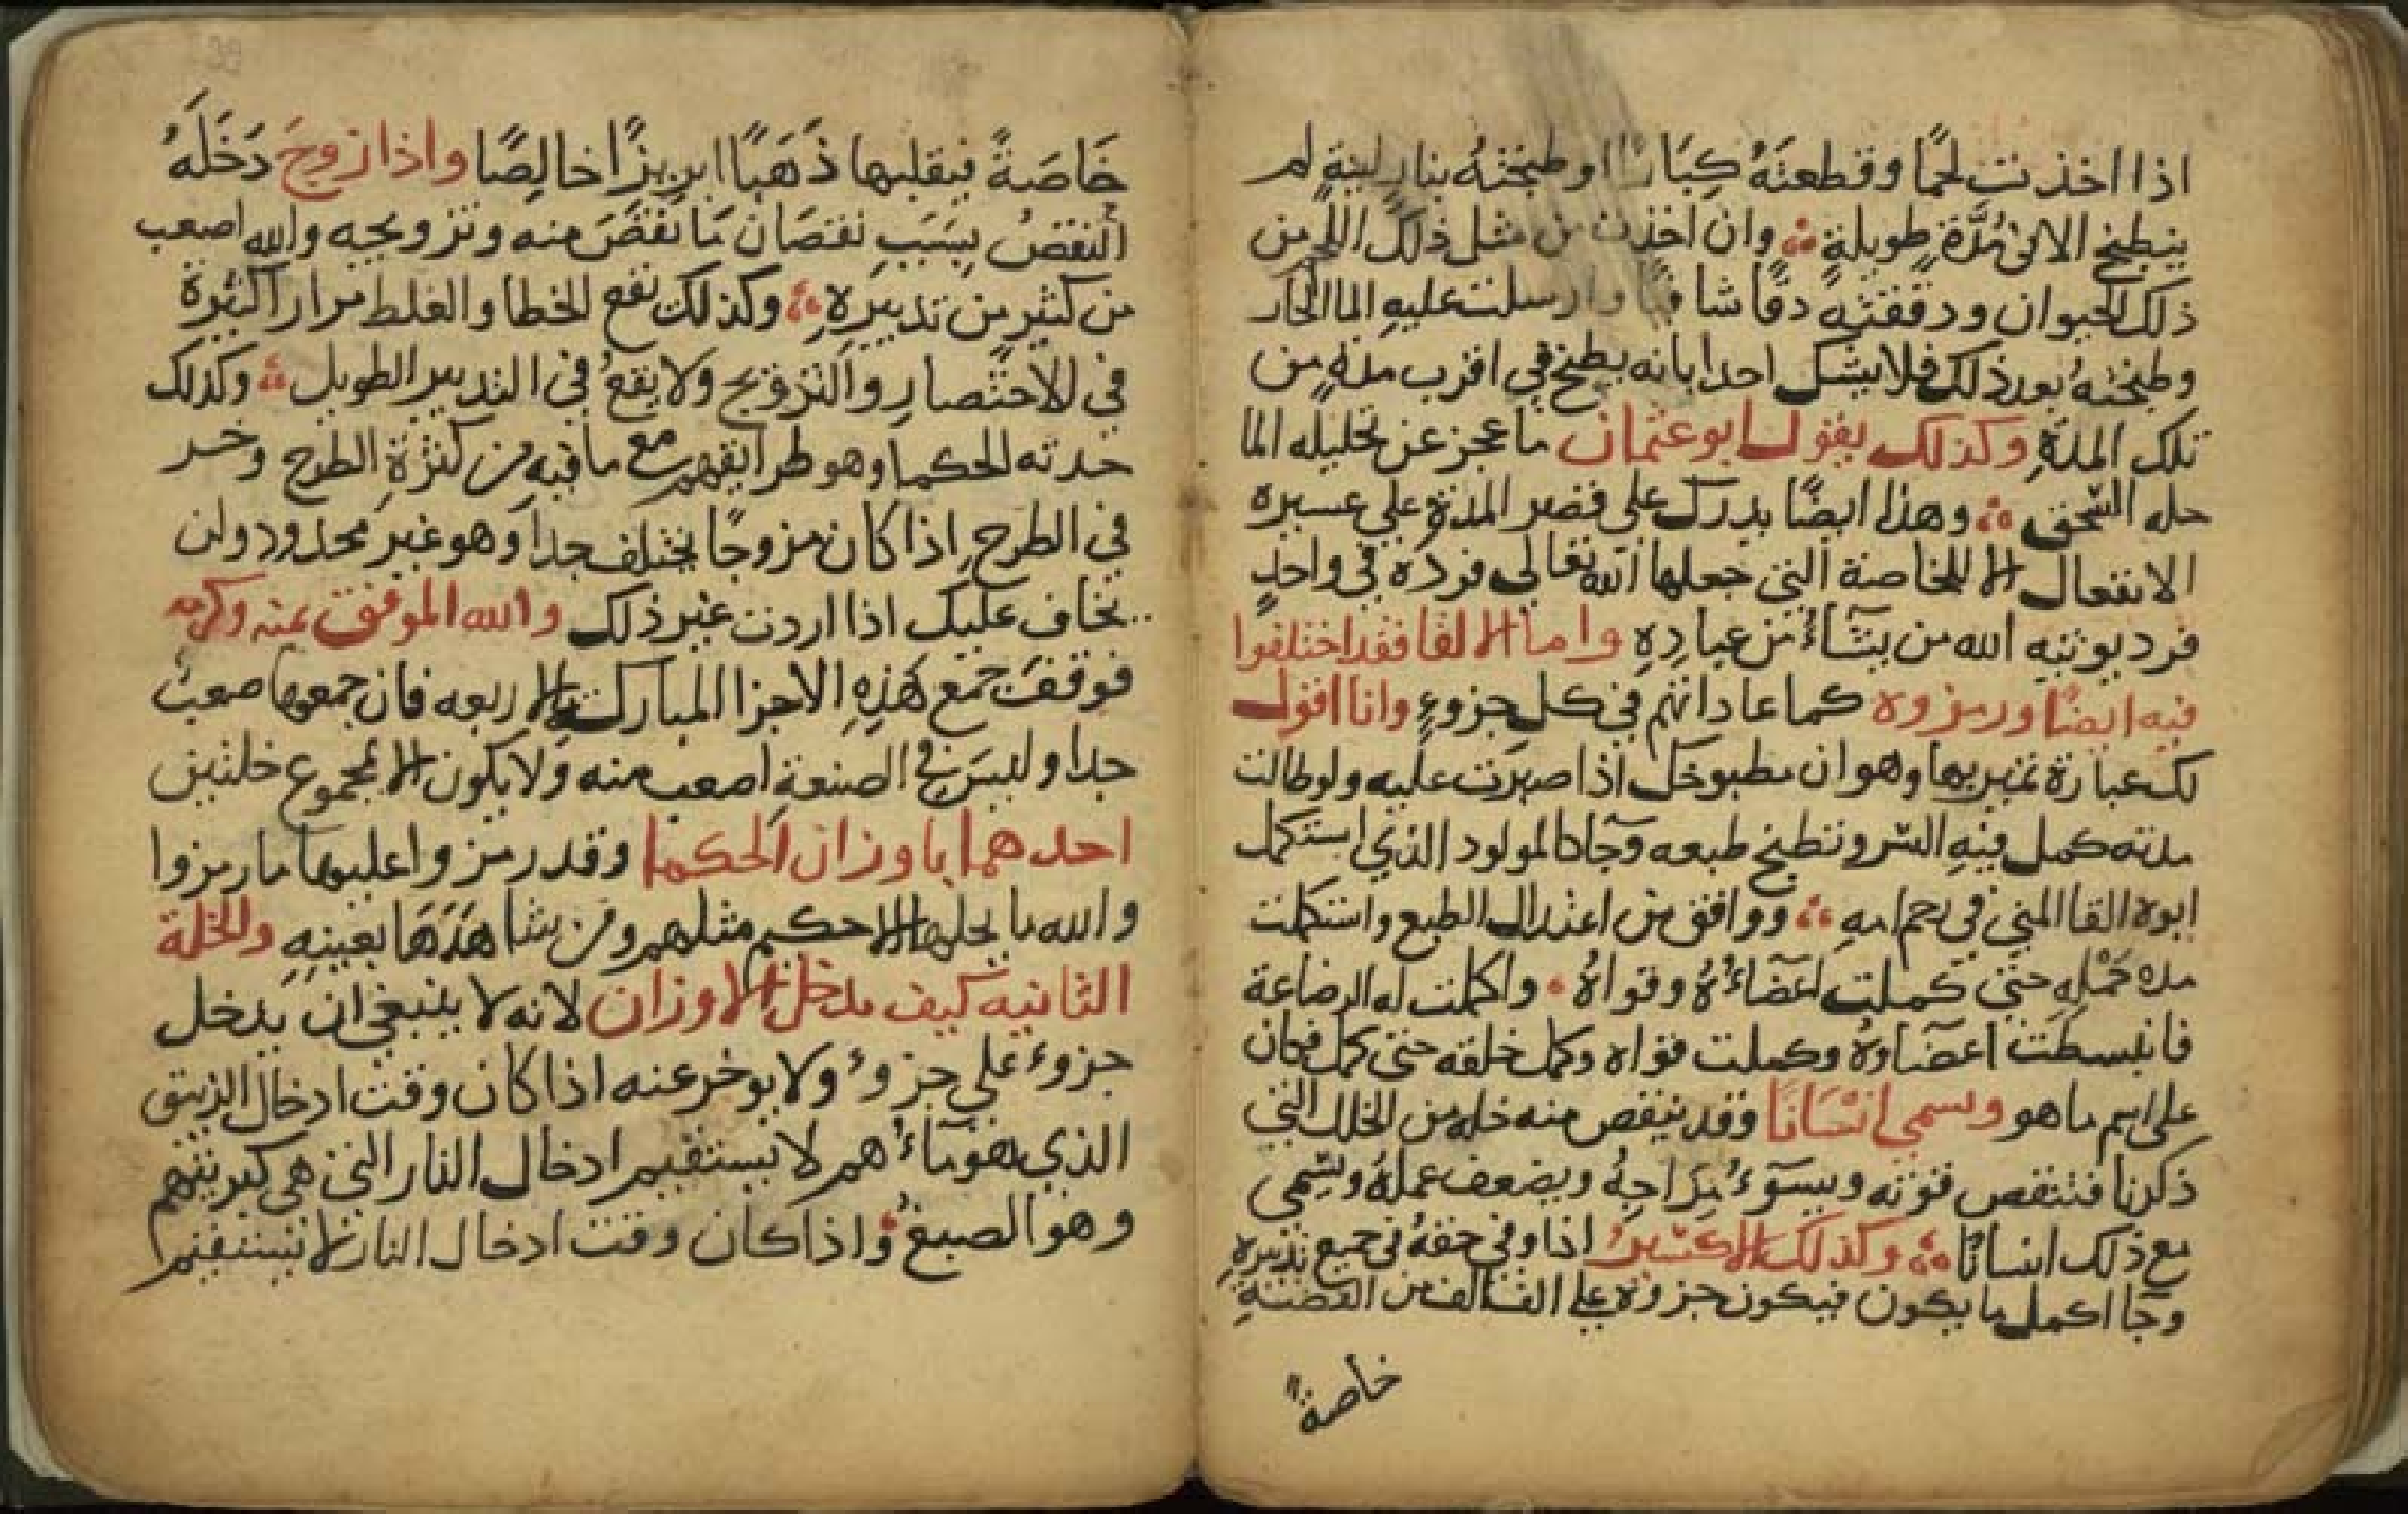 اذا اخذت لحمًا وقطعته كبارًا وطبخته بنار لينة لم
ينطبخ الا في مُدَّة طويلة وان اخذت من مثل ذلك اللحم من
ذلك الحيوان ودققته دقًا شافيًا وارسلت عليه الما الحار
وطبخته بعد ذلك فلا يشك احدا بانه يطبخ في اقرب مدة من
تلك المدة وكذلك يقول ابو عثمان ما عجز عن تحليله الما
حله السحق وهذا ايضًا يدرك على قصر المدة علي عسيرة
الانفعال الا للخاصة التي جعلها الله تعالى فردة في واحدٍ
فرد يوتيه الله من يشآءُ من عباده واما الالقا فقد اختلفوا
فيه ايضًا ورمزوه كما عاداتهم في كل جزوءٍ وانا اقول
لك عبارة تخبر بها وهو ان مطبوخك اذا صبرت عليه ولو طالت
مدته كمل فيه السر ونطبخ طبعه وجآ كالمولود الذي استكمل
ابوه القا المني في رحم امه ووافق من اعتدال الطبع واستكملت
مدة حمله حتي كملت اعضاءُه وقواهُ واكملت له الرضاعة
فانبسطت اعضاوهُ وكملت قواه وكمل خلقه حتى كمل فكان
على اسم ما هو وسمي انسانًا وقد ينقص منه خله من الخلل التي
ذكرنا فتنقص قوته ويسوءُ مزاجهُ ويضعف عملهُ ويسمى
مع ذلك انسانًا وكذلك الاكسيرُ اذا وفي حقهُ في جميع تدبيره
وجا اكمل ما يكون فيكون جزوه على الف الف من الفضة
خاصةً
خَاصَةً فيقلبها ذَهَبًا ابريزًا خالِصًا واذا زوجَ دَخَلَهُ
النقصُ بسَبَبِ نقصَان مَا نقصَ منه وتزويجه والله اصعب
من كثير من تدبيره وكذلك نفع الخطا والغلط مرارا كثيرة
في الاختصارِ والتزويج ولا يقعُ في التدبير الطويل وكذلك
حدته الحكما وهو طرايقهم مع ما فيه من كثرة الطرح وخد
في الطرح اذا كان مزوجًا يختلف جدا وهو غير محدود ولن
يخاف عليك اذا اردت غير ذلك والله الموفق بمنه وكرمه
فوقفت جمع هذه الاجزا المباركة الاربعه فان جمعها صعبُ
جدا وليس في الصنعة اصعب منه ولا يكون الا بمجموع خلتين
احدهما باوزان الحكما وقد رمزوا عليها ما رمزوا
والله ما يحلها الا حكيم مثلهم ومن شاهدَهَا بعينهِ والخلة
الثانيه كيف مدخل الاوزان لانه لا ينبغي ان يدخل
جزوء على جزوء ولا يوخر عنه اذا كان وقت ادخال الزيبق
الذي هو مآءُهم لا يستقيم ادخال النار التي هي كبريتهم
وهو الصبغُ واذا كان وقت ادخال النار لا يستقيم